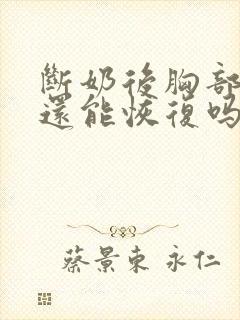 斷奶後胸部
還能恢復吗
蔡景東 永仁